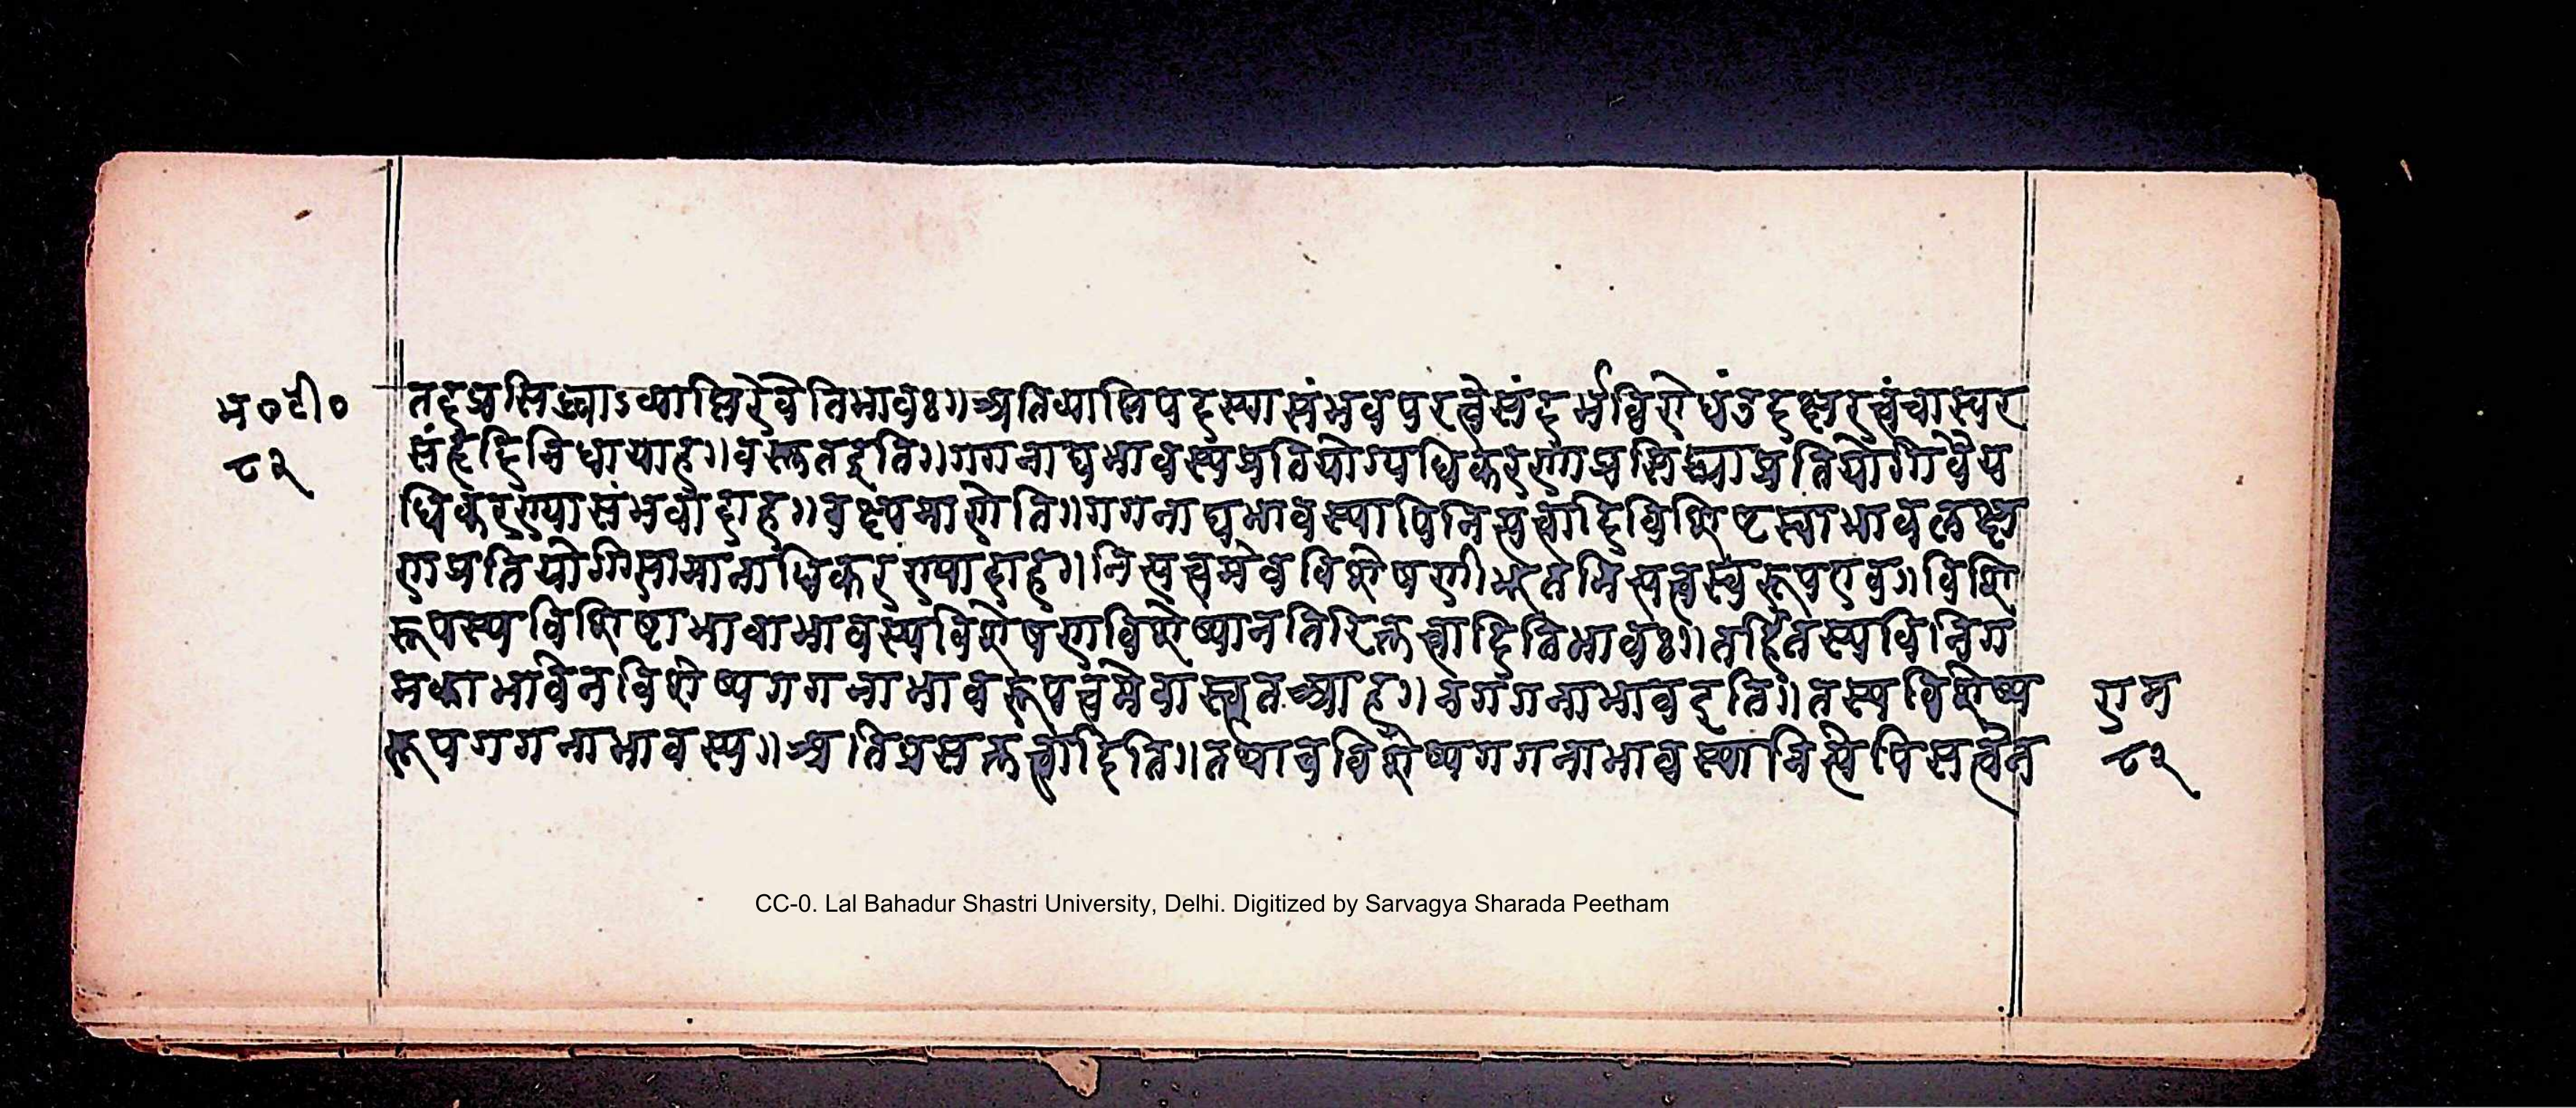 म०टी०
८२
तदप्रसिद्ध्याऽव्याप्तिरेवेतिभावः॥अतिव्याप्तिपदस्यासंभवपरत्वेसंदर्भविरोधंउदक्षरत्वंचास्वर
संहृदिनिधायाह॥वस्तुतइति॥गगनाद्यभावस्यप्रतियोग्यधिकरणाप्रसिद्ध्याप्रतियोगिवैय
धिकरण्यासंभवादाह॥वक्ष्यमाणेति॥गगनाद्यभावस्यापिनित्यत्वादिविशिष्टस्वाभावलक्ष
णप्रतियोगिसामानाधिकरण्यादाह॥नित्यत्वमेवविशेषणीभूतनित्यत्वस्वरूपएव॥विशि
रूपस्यविशिष्टाभावाभावस्यविशेषणविशेष्यानतिरिक्तत्वादितिभावः॥तर्हितस्यविनिग
मकाभावेनविशेष्यगगनाभावरूपत्वमेवास्त्वतआह॥नगगनाभावइति॥तस्यविशेष्य
रूपगगनाभावस्य॥अतिप्रसक्तत्वादिति॥तथाचविशेष्यगगनाभावस्यानित्येपिसत्वेन
राम
८२
CC-0. Lal Bahadur Shastri University, Delhi. Digitized by Sarvagya Sharada Peetham